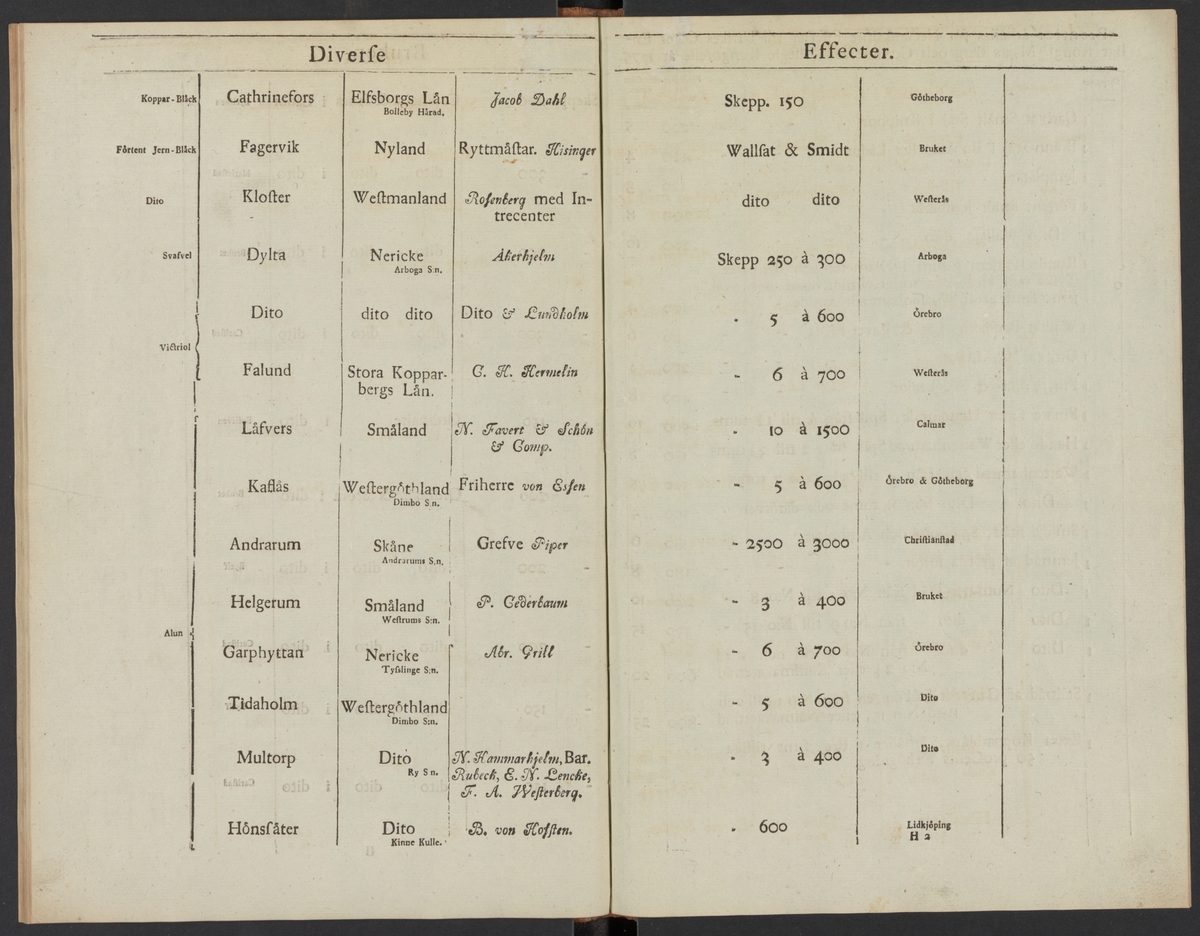 Diverſe Effecter.
Koppar-Blåck Cathrinefors Elfsborgs Lån Jacob Dahl Skepp. 150 Gôtheborg
Bolleby Hårad.
Fôrtent Jern-Blåck Fagervik Nyland Ryttmåſtar. Hisinger Wallſat & Smidt Bruket
Dito Kloſter Weſtmanland Roſenberg med In-
trecenter
dito dito Weſterås
Svafvel Dylta Nericke Åkerhjelm Skepp 250 à 300 Arboga
Arboga S:n.
Dito dito dito Dito & Lundholm - 5 à 600 Ôrebro
Victriol
Falund Stora Koppar-
bergs Lån.
C. H. Hermelin - 6 à 700 Weſterås
Låfvers Småland N. Favert & Schôn
& Comp.
- 10 à 1500 Calmar
Kaflås Weſtergôthland Friherre von Esſen - 5 à 600 Ôrebro & Gôtheborg
Dimbo S:n.
Andrarum Skåne Grefve Piper - 2500 à 3000 Chriſtianſtad
Andrarums S:n.
Helgerum Småland P. Cederbaum - 3 à 400 Bruket
Weſtrums S:n.
Alun
Garphyttan Nericke Abr. Grill - 6 à 700 Ôrebro
Tysſlinge S:n.
Tidaholm Weſtergôthland - 5 à 600 Dito
Dimbo S:n.
Multorp Dito N. Hammarhjelm, Bar.
Rubeck, E. N. Lencke,
F. A. Weſterberg.
- 3 à 400 Dito
Ry S:n.
Hônsſåter Dito B. von Hofſten. - 600 Lidkjôping
Kinne Kulle.
H 2